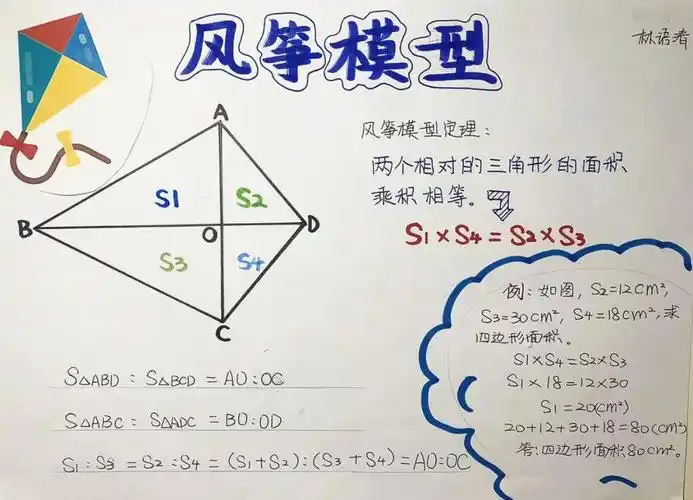 风筝模型
林语涛
A
S1
S2
B
O
D
S3
S4
C
风筝模型定理:
两个相对的三角形的面积
乘积相等。
S1×S4=S2×S3
例:如图,S2=12cm²,
S3=30cm²,S4=18cm²,求
四边形面积。
S1×S4=S2×S3
S1×18=12×30
S1=20(cm²)
20+12+30+18=80(cm²)
答:四边形面积80cm²。
S△ABD:S△BCD=AO:OC
S△ABC:S△ADC=BO:OD
S1:S3=S2:S4=(S1+S2):(S3+S4)=AO:OC